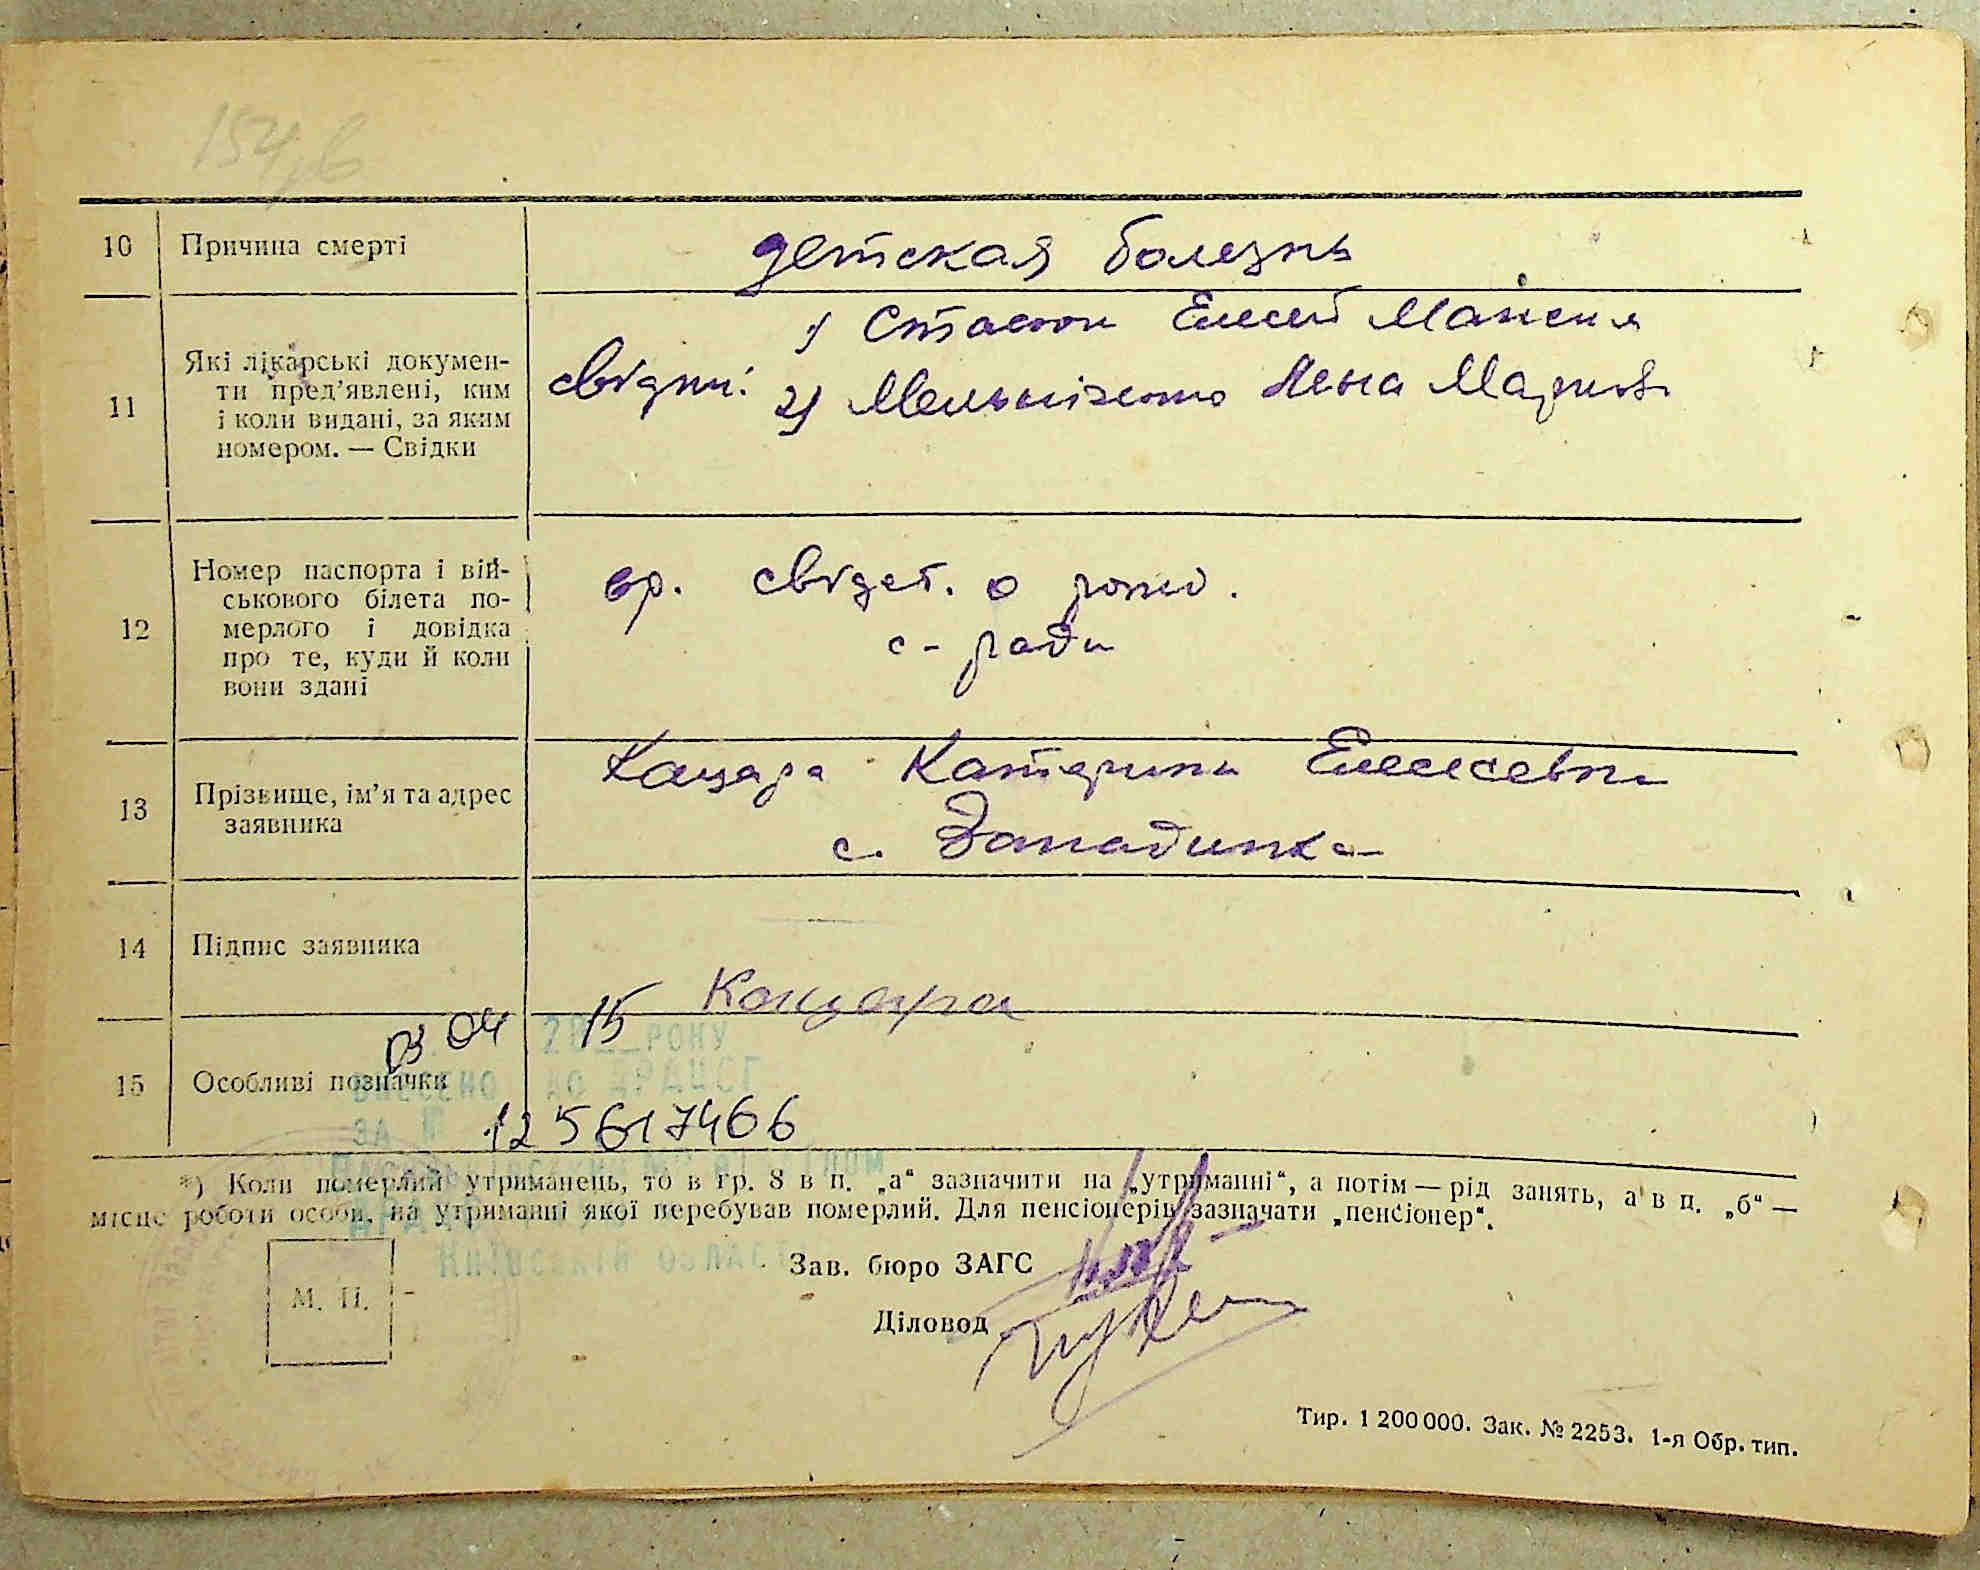 154
10 Причина смерті детская болезнь
11 Які лікарські докумен-
ти пред'явлені, ким
і коли видані, за яким
номером. — Свідки
свідки:
1) Стасюк Елесей Максим
2) Мельніченко Анна Марков
12 Номер паспорта і вій-
ськового білета по-
мерлого і довідка
про те, куди й коли
вони здані
вр. свідет. о рожд.
с-ради
13 Прізвище, ім'я та адрес
заявника
Кацара Катерина Елесеевна
с. Западинка
14 Підпис заявника Кацара
03 04 2015 РОКУ
15 Особливі позначки
ВНЕСЕНО до ДРАЦСГ
ЗА № 125617466
*) Коли померлий утриманець, то в гр. 8 в п. „а“ зазначити на „утриманні“, а потім — рід занять, а в п. „б“ —
місце роботи особи, на утриманні якої перебував померлий. Для пенсіонерів зазначати „пенсіонер“.
Київській ОБЛАСТІ
Зав. бюро ЗАГС
М. П.
Діловод
Тир. 1 200 000. Зак. № 2253. 1-я Обр. тип.